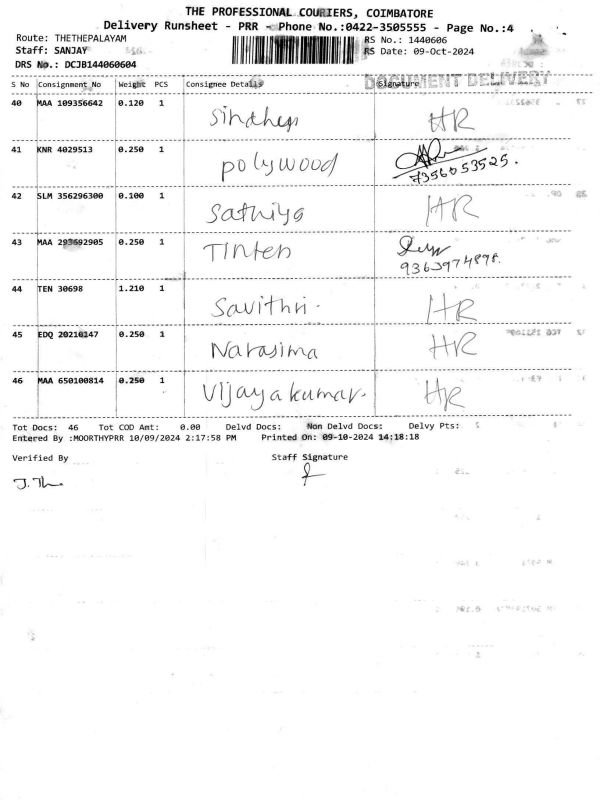 THE PROFESSIONAL COURIERS, COIMBATORE
Delivery Runsheet - PRR - Phone No.:0422-3505555 - Page No.:4
Route: THETHEPALAYAM RS No.: 1440606
Staff: SANJAY RS Date: 09-Oct-2024
DRS No.: DCJB144060604
DOCUMENT DELIVERY
S No Consignment No Weight PCS Consignee Details Signature
40 MAA 109356642 0.120 1 Sindhep HR
41 KNR 4029513 0.250 1 polywood
7356053525.
42 SLM 356296300 0.100 1 Sathiya HR
43 MAA 293692905 0.250 1 TInten
9363974898.
44 TEN 30698 1.210 1 Savithri. HR
45 EDQ 20210147 0.250 1 Narasima HR
46 MAA 650100814 0.250 1 Vijayakumar. HR
Tot Docs: 46 Tot COD Amt: 0.00 Delvd Docs: Non Delvd Docs: Delvy Pts:
Entered By :MOORTHYPRR 10/09/2024 2:17:58 PM Printed On: 09-10-2024 14:18:18
Verified By Staff Signature